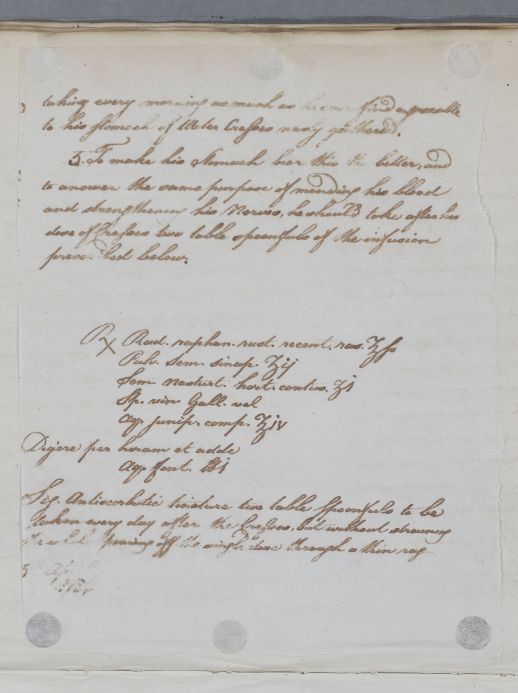 taking every morning as much as he can find agreeable
to his Stomach of Water Cresses newly gathered.
5. To make his Stomach bear this the better, and
to answer the same purpose of mending his blood
and strengthening his Nerves, he should take after his
dose of Cresses two table spoonfuls of the infusion
prescribed below.
Rx Rad. raphan. rust. recent. ras. ℥ss
Pulv. Sem. sinap. ʒij
Sem. Nasturt. hort. contus. ʒi
Sp. vin Gall. vel
aq. junip. comp. ℥iv
Digere per horam et adde
aq. font. ℔i
Sig. Antiscorbutic tincture two table Spoonfuls to be
taken every day after the Cresses, but without straining
the whole, pouring off the single dose through a thin rag